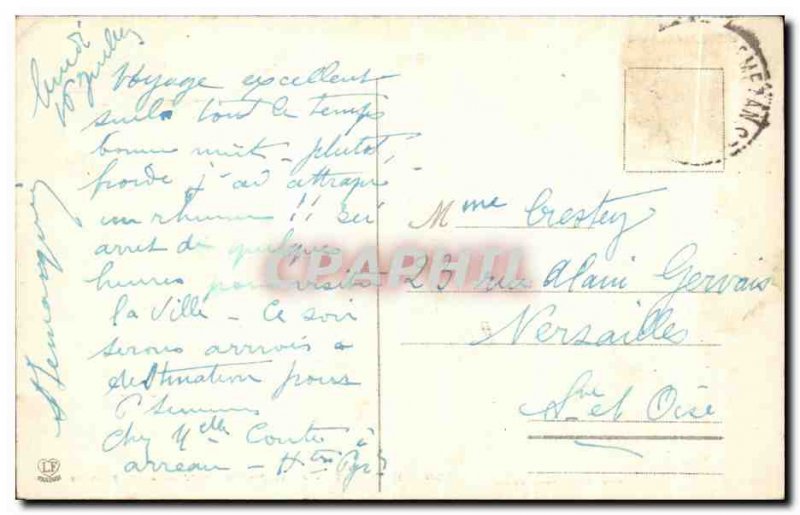 lundi
Voyage excellent
tout le temps
bonne nuit plutôt,
froide j'ai attrapé
un rhume !! ici
arret de quelques
heures pour visiter
la Ville - Ce soir
serons arrivés a
destination pour
chez Melle à
arreau - Htes Pyr
Mme Crestey
23 rue Alain Gervais
Versailles
Sne et Oise
CPAPHIL
LF